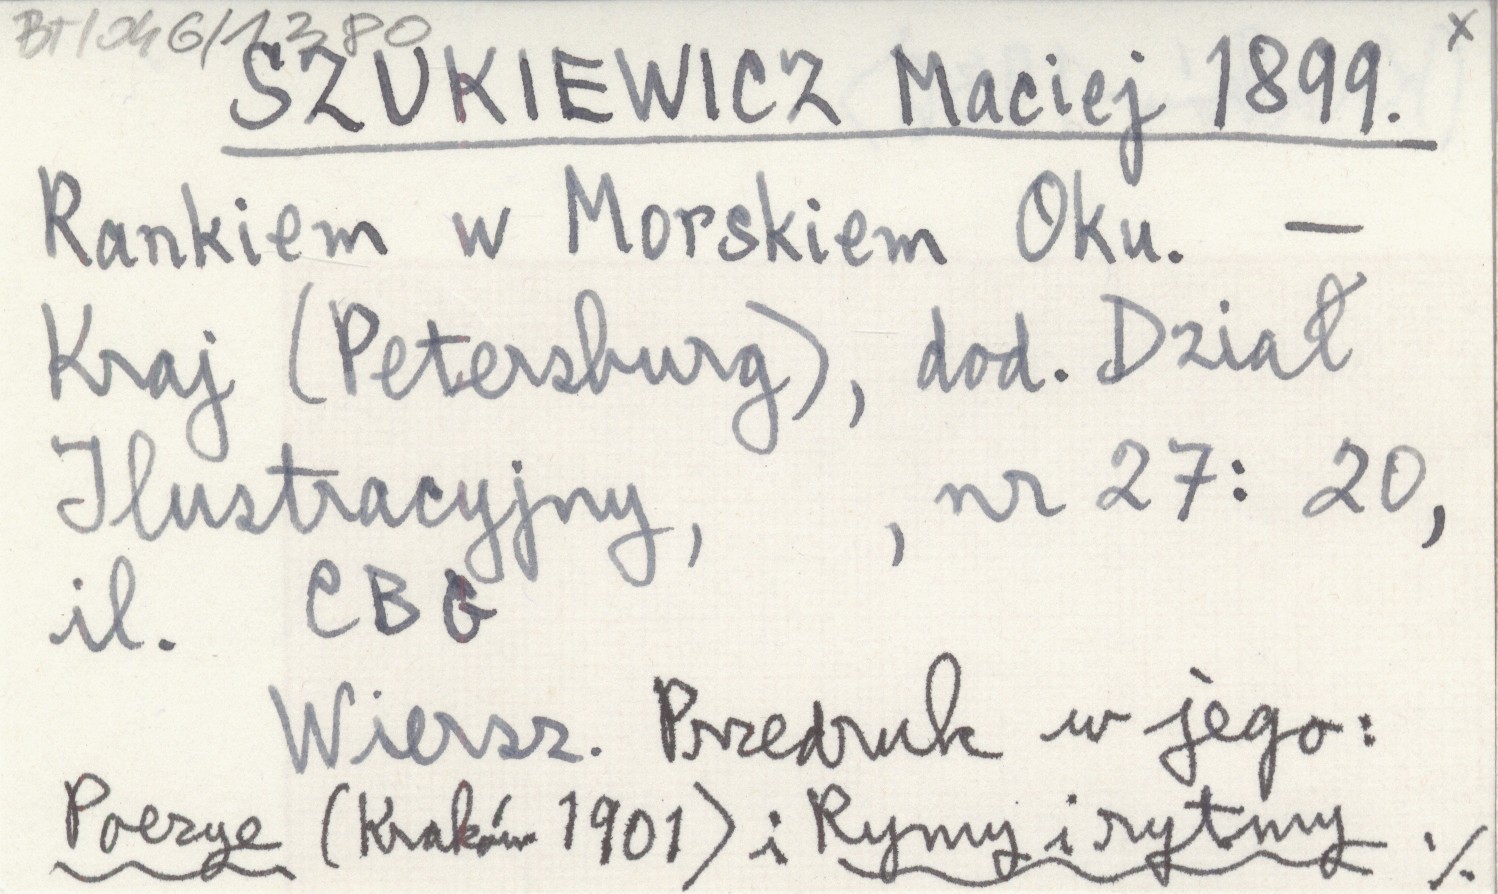 BT/046/1380 x
SZUKIEWICZ Maciej 1899.
Rankiem w Morskiem Oku. —
Kraj (Petersburg), dod. Dział
Ilustracyjny, , nr 27: 20,
il. CBG
Wiersz. Przedruk w jego:
Poezye (Kraków 1901) i Rymy i rytmy ·/.